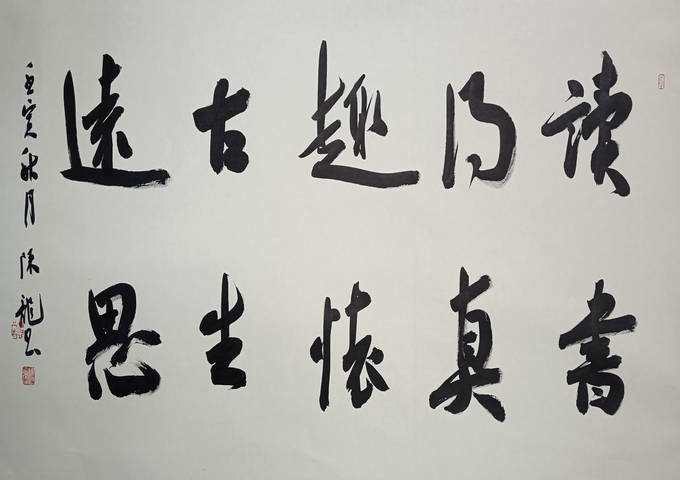 讀書
得真
趣懷
古生
遠思
壬寅秋月 陳龍书